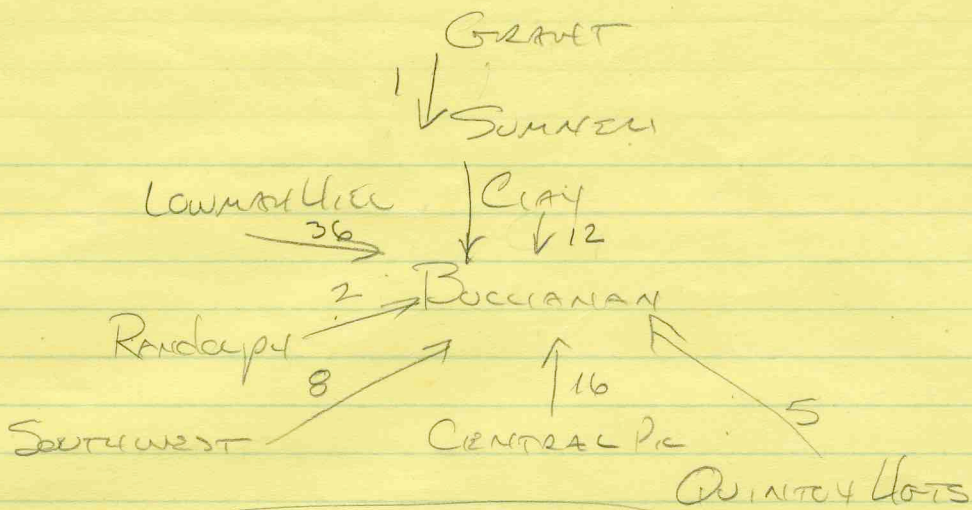 GRANT
1
SUMNER
LOWMAN HILL
36
CLAY
12
2
BUCHANAN
RANDOLPH
8
16
5
SOUTHWEST
CENTRAL PK
QUINTON HGTS